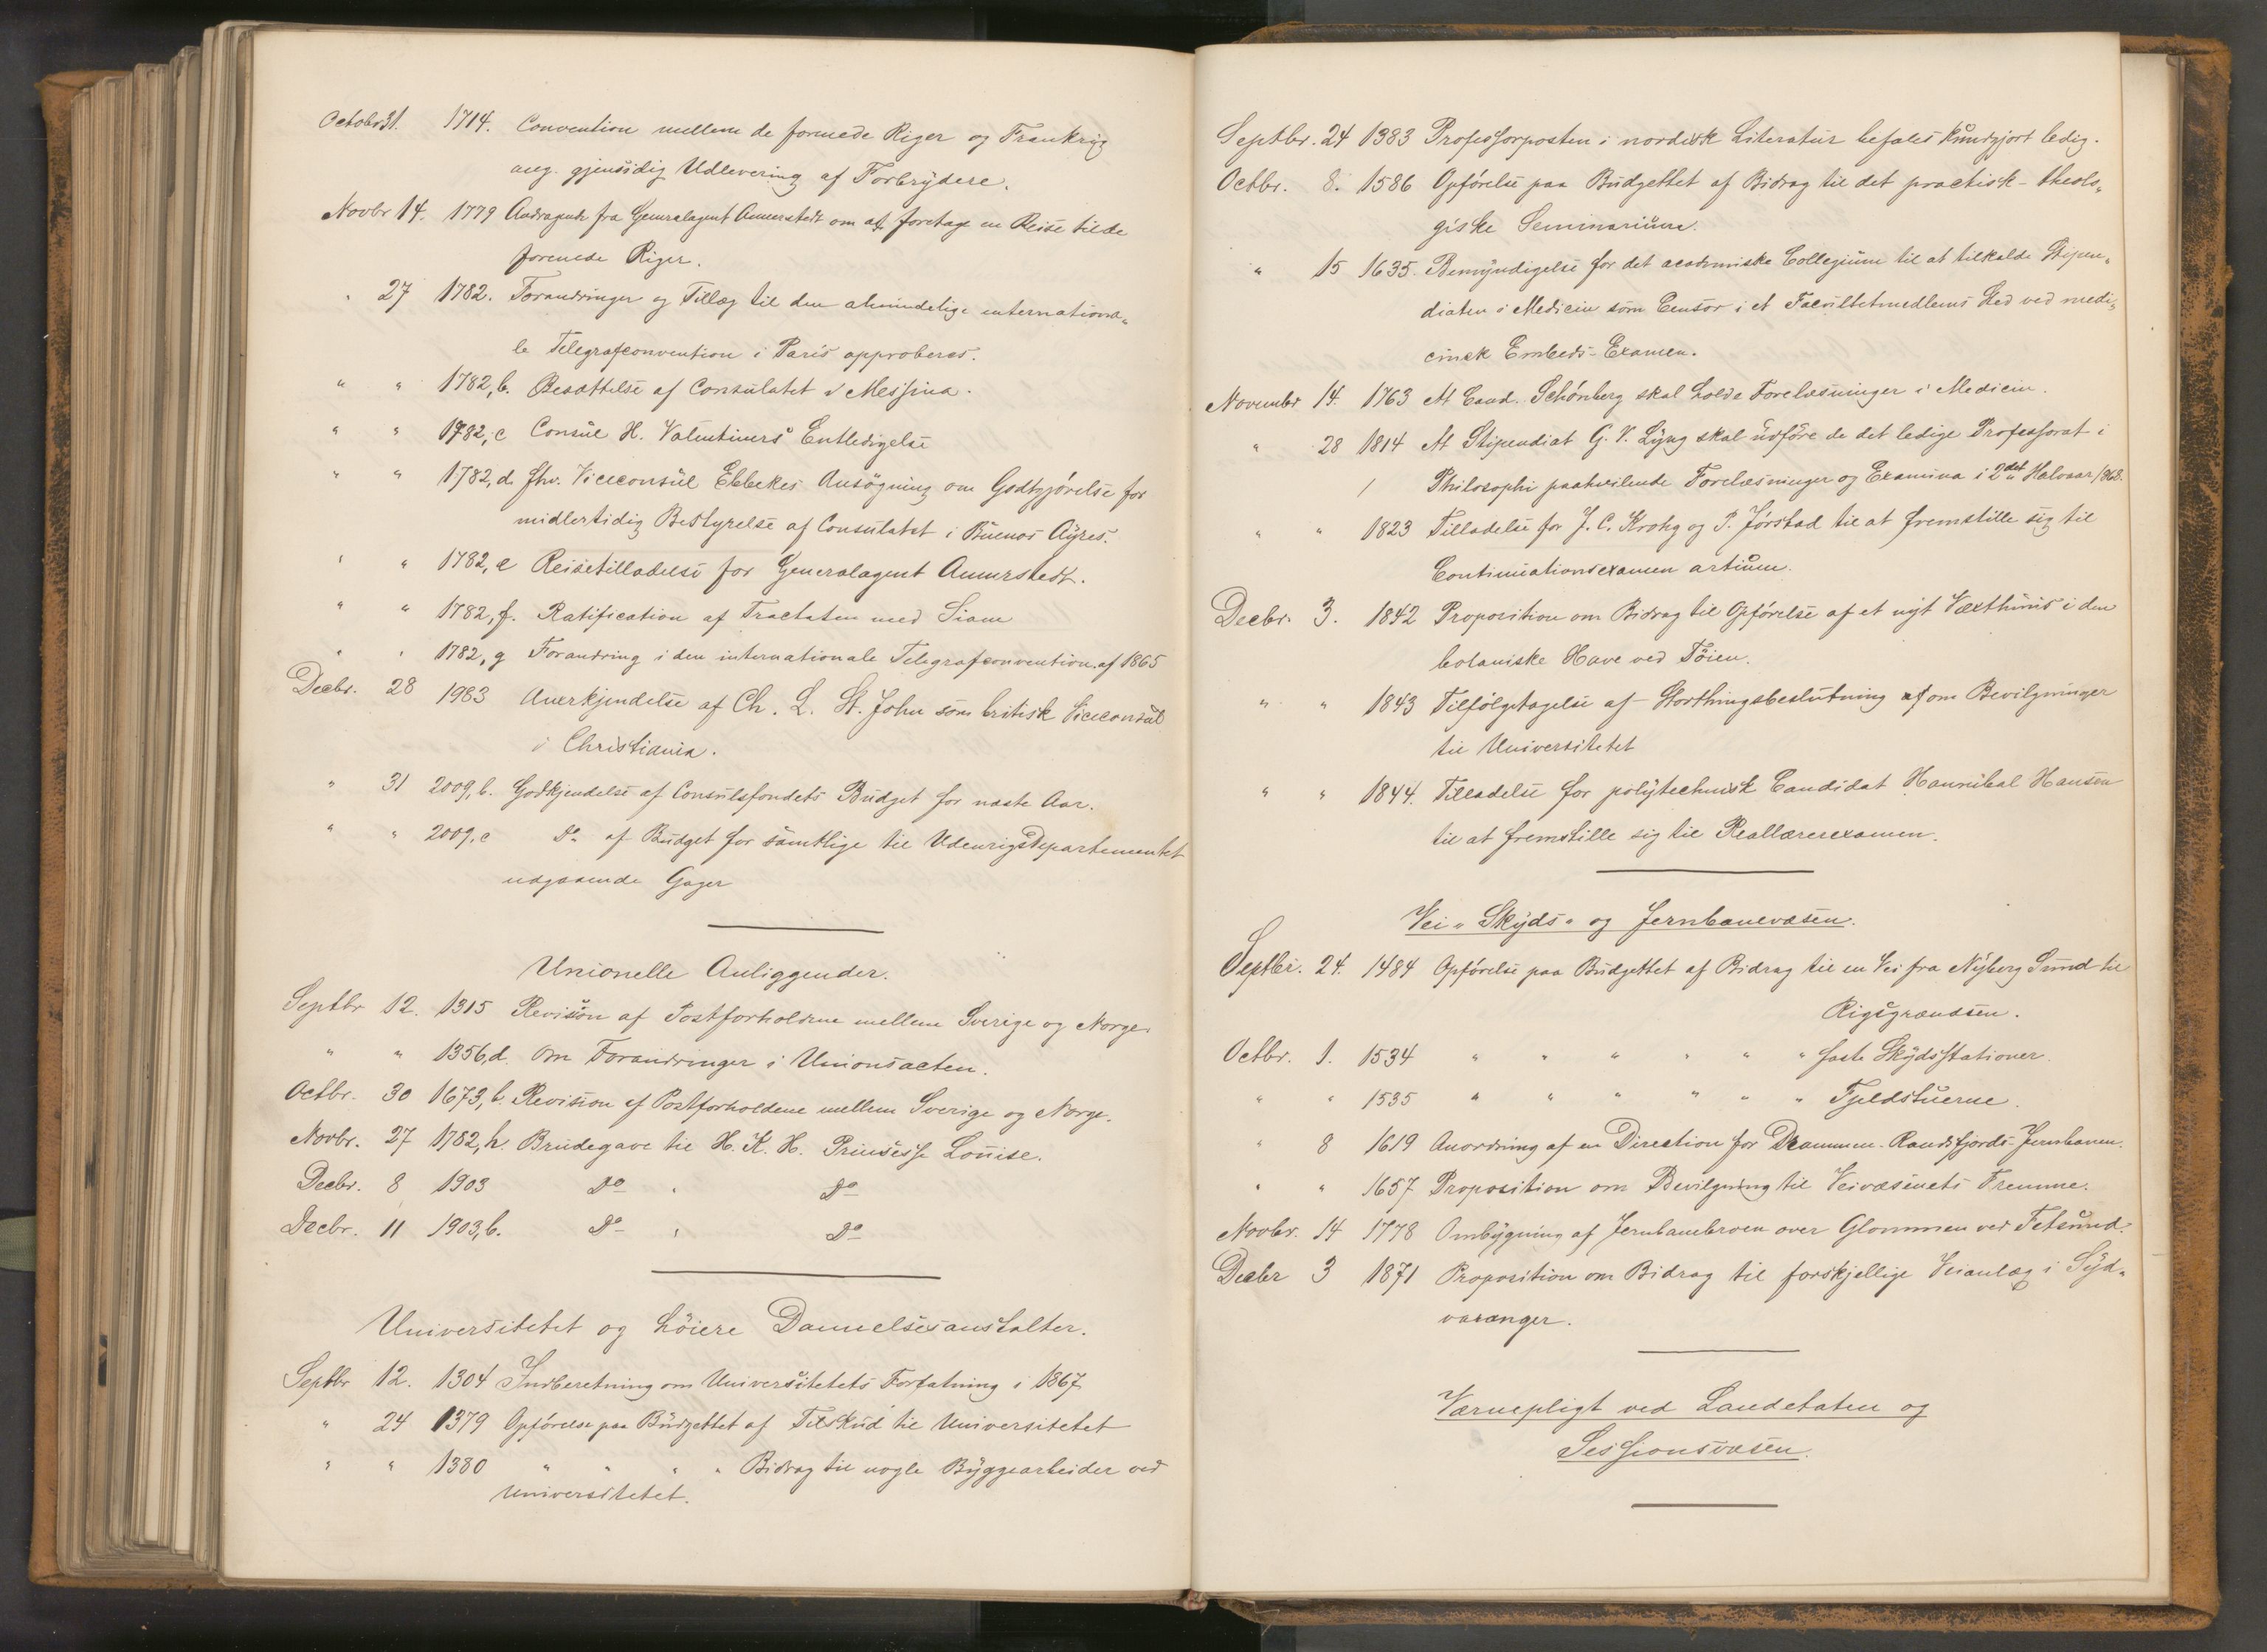 Octobr 31. 1714. Convention mellem de forenede Riger og Frankrig
ang. gjensidig Udlevering af Forbrydere.
Novbr 14. 1779 Andragende fra Generalagent Annerstedt om at foretage en Reise til de
forenede Riger.
" 27 1782. Forandringer og Tillæg til den almindelige internationa„
le Telegrafconvention i Paris approberes.
" " 1782, b. Besættelse af Consulatet i Messina.
" " 1782, c Consul H. Valentiners Entledigelse
" " 1782, d. fhv. Viceconsul Ebbekes Ansøgning om Godtgjørelse for
midlertidig Bestyrelse af Consulatet i Buenos Ayres.
" " 1782, e Reisetilladelse for Generalagent Annerstedt.
" " 1782, f. Ratification af Tractaten med Siam
" " 1782, g Forandring i den internationale Telegrafconvention af 1865
Decbr. 28 1983 Anerkjendelse af Ch. L. St. John som britisk Viceconsul
i Christiania.
" 31 2009, b. Godkjendelse af Consulsfondets Budget for næste Aar.
" " 2009, c Do af Budget for samtlige til Udenrigsdepartementet
udgaaende Gager
Unionelle Anliggender.
Septbr 12. 1315 Revision af Postforholdene mellem Sverige og Norge.
" " 1356, d. Om Forandringer i Unionsacten.
Octbr. 30 1673, b. Revision af Postforholdene mellem Sverige og Norge.
Novbr. 27 1782, h. Brudegave til H. K. H. Prinsesse Louise.
Decbr. 8 1903 Do " Do
Decbr. 11 1903, b. Do " Do
Universitetet og høiere Dannelsesanstalter.
Septbr 12. 1304 Indberetning om Universitetets Forfatning i 1867
" 24 1379 Opførelse paa Budgettet af Tilskud til Universitetet
" " 1380 " " " " Bidrag til nogle Byggearbeider ved
Universitetet.
Septbr. 24 1383 Professorposten i nordisk Literatur befales kundgjort ledig.
Octbr. 8. 1586 Opførelse paa Budgettet af Bidrag til det practisk-theolo„
giske Seminarium.
" 15 1635. Bemyndigelse for det academiske Collegium til at tilkalde Stipen„
diaten i Medicin som Censor i et Facultetmedlems Sted ved medi„
cinsk Embeds-Examen.
November 14. 1763 At Cand. Schönberg skal holde Forelæsninger i Medicin.
" 28 1814 At Stipendiat G. V. Lyng skal udføre de det ledige Professorat i
Philosophi paahvilende Forelæsninger og Examina i 2det Halvaar 1868.
" " 1823 Tilladelse for J. C. Krohg og P. Jørstad til at fremstille sig til
Continuationsexamen artium.
Decbr. 3. 1842 Proposition om Bidrag til Opførelse af et nyt Væxthuus i den
botaniske Have ved Tøien.
" " 1843 Tilfølgetagelse af Storthingsbeslutning af om Bevilgninger
til Universitetet
" " 1844. Tilladelse for polytechnisk Candidat Hannibal Hansen
til at fremstille sig til Reallærerexamen.
Vei- Skyds- og Jernbanevæsen.
Septbr. 24. 1484 Opførelse paa Budgettet af Bidrag til en Vei fra Nyberg Sund til
Rigsgrændsen.
Octbr. 1. 1534 " " " " " " faste Skydsstationer.
" " 1535 " " " " " " Fjeldstuerne.
" 8 1619 Anordning af en Direction for Drammen-Randsfjords-Jernbanen.
" " 1657 Proposition om Bevilgning til Veivæsenets Fremme.
Novbr. 14 1778 Ombygning af Jernbanebroen over Glommen ved Fetsund.
Decbr 3 1871 Proposition om Bidrag til forskjellige Veianlæg i Syd„
varanger.
Værnepligt ved Landetaten og
Sessionsvæsen.